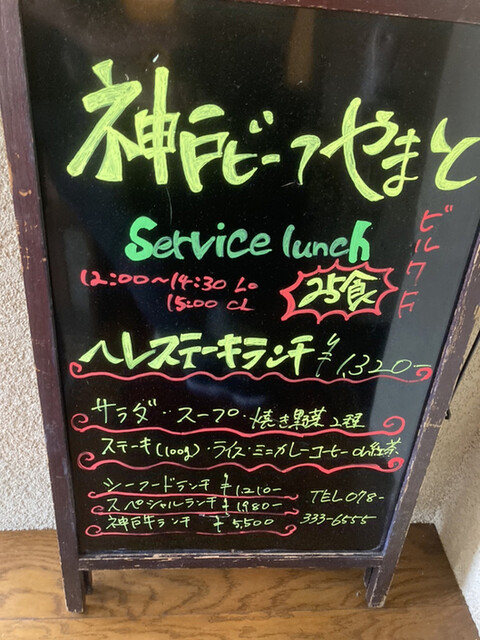 神戸ビーフやまと
ビル7F
Service lunch
12:00〜14:30 Lo
15:00 CL
25食
ヘレステーキランチ ¥1,320-
サラダ・スープ・焼き野菜2種
ステーキ(100g)・ライス・ミニカレーコーヒーor紅茶
シーフードランチ ¥1210-
スペシャルランチ ¥1980-
神戸牛ランチ ¥5,500
TEL 078-
333-6555